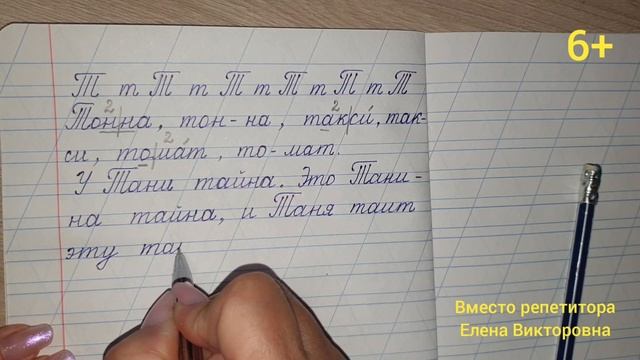 6+
Т т Т т Т т Т т Т т Т
2 2
Тонна, тон-на, такси́, так-
2
си, тома́т, то-мат.
У Тани тайна. Это Тани-
на тайна, и Таня таит
эту таи
Вместо репетитора
Елена Викторовна